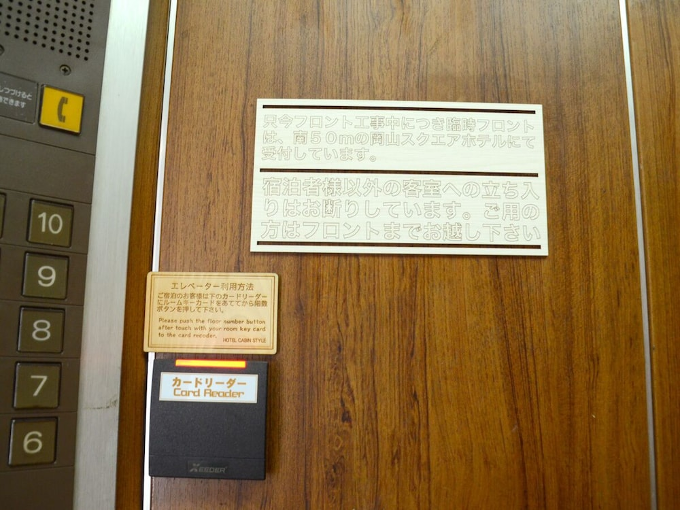 しつづけると
できます
10
9
8
7
6
只今フロント工事中につき臨時フロント
は、南50mの岡山スクエアホテルにて
受付しています。
宿泊者様以外の客室への立ち入
りはお断りしています。ご用の
方はフロントまでお越し下さい
エレベーター利用方法
ご宿泊のお客様は下のカードリーダー
にルームキーカードをあててから階数
ボタンを押して下さい。
Please push the floor number button
after touch with your room key card
to the card reender.
HOTEL CABIN STYLE
カードリーダー
Card Reader